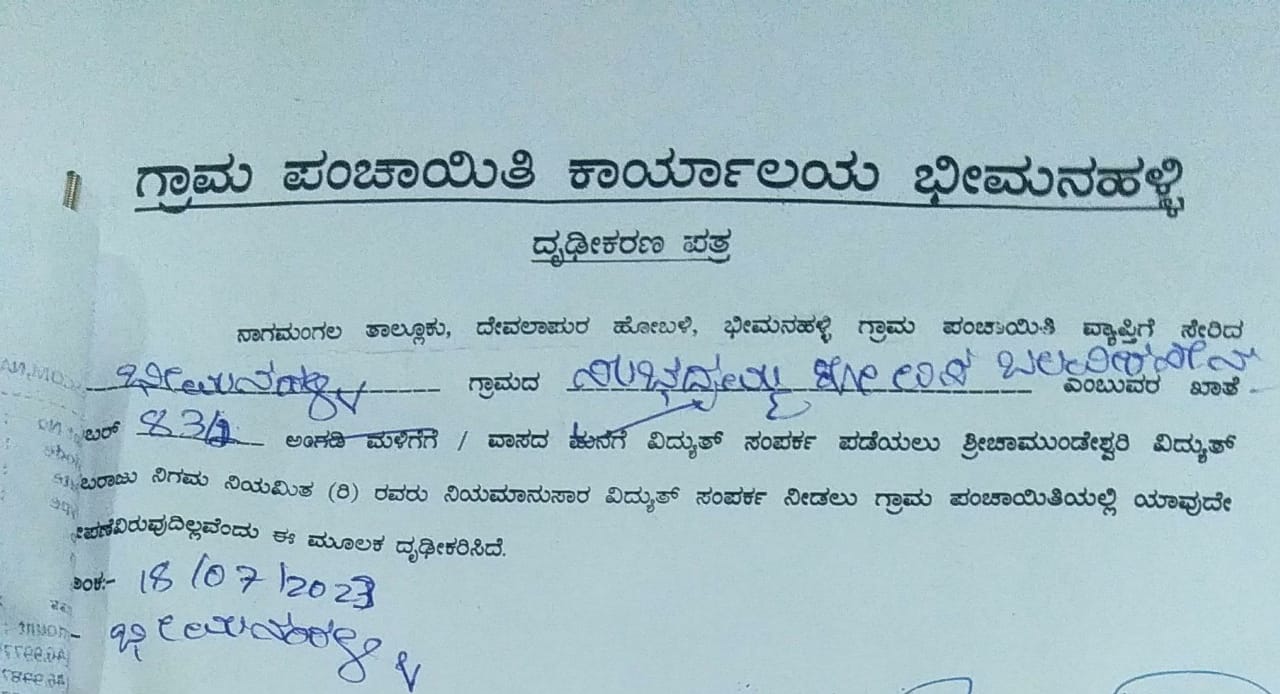 ಗ್ರಾಮ ಪಂಚಾಯಿತಿ ಕಾರ್ಯಾಲಯ ಭೀಮನಹಳ್ಳಿ
ದೃಢೀಕರಣ ಪತ್ರ
ನಾಗಮಂಗಲ ತಾಲ್ಲೂಕು, ದೇವಲಾಪುರ ಹೋಬಳಿ, ಭೀಮನಹಳ್ಳಿ ಗ್ರಾಮ ಪಂಚಾಯಿತಿ ವ್ಯಾಪ್ತಿಗೆ ಸೇರಿದ
ಭೀಮನಹಳ್ಳಿ ಗ್ರಾಮದ ಎಂಬುವರ ಖಾತೆ
ಬರ್ ಅಂಗಡಿ ಮಳಿಗೆಗೆ / ವಾಸದ ಮನೆಗೆ ವಿದ್ಯುತ್ ಸಂಪರ್ಕ ಪಡೆಯಲು ಶ್ರೀಚಾಮುಂಡೇಶ್ವರಿ ವಿದ್ಯುತ್
ಬರಾಜು ನಿಗಮ ನಿಯಮಿತ (ರಿ) ರವರು ನಿಯಮಾನುಸಾರ ವಿದ್ಯುತ್ ಸಂಪರ್ಕ ನೀಡಲು ಗ್ರಾಮ ಪಂಚಾಯಿತಿಯಲ್ಲಿ ಯಾವುದೇ
ೇಪಣೆವಿರುವುದಿಲ್ಲವೆಂದು ಈ ಮೂಲಕ ದೃಢೀಕರಿಸಿದೆ.
ಾಂಕ:- 18/07/2023
ಭೀಮನಹಳ್ಳಿ